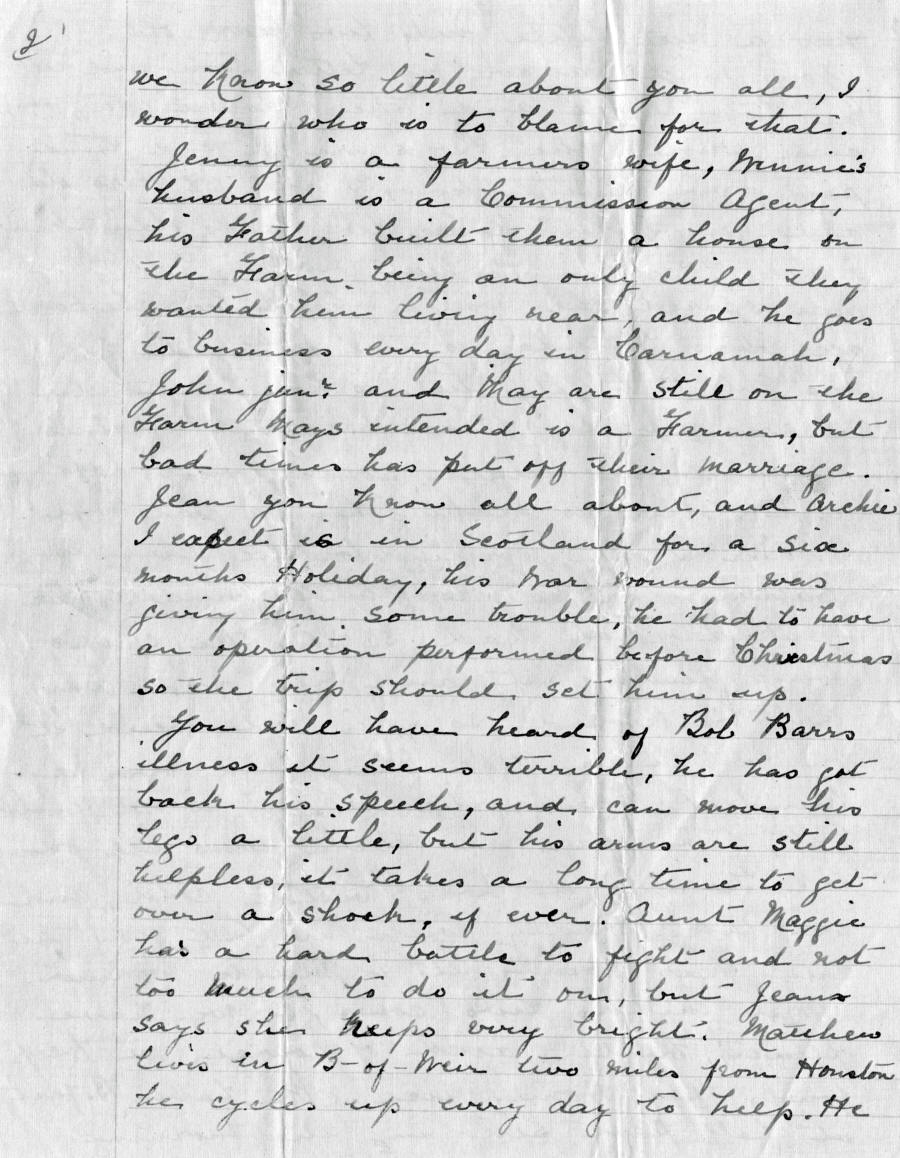 2
we know so little about you all, I
wonder who is to blame for that.
Jenny is a farmers wife, Winnie's
husband is a Commission Agent,
his Father built them a house on
the Farm being an only child they
wanted him living near, and he goes
to business every day in Carnamah,
John junr. and May are still on the
Farm Mays intended is a Farmer, but
bad times has put off their marriage.
Jean you know all about, and Archie
I expect is in Scotland for a six
months Holiday, his War wound was
giving him some trouble, he had to have
an operation performed before Christmas
so the trip should set him up.
You will have heard of Bob Barrs
illness it seems terrible, he has got
back his speech, and can move his
legs a little, but his arms are still
helpless, it takes a long time to get
over a shock, if ever. Aunt Maggie
has a hard battle to fight and not
too much to do it on, but Jean
says she keeps very bright. Matthew
lives in B-of-Weir two miles from Houston
he cycles up every day to help. He